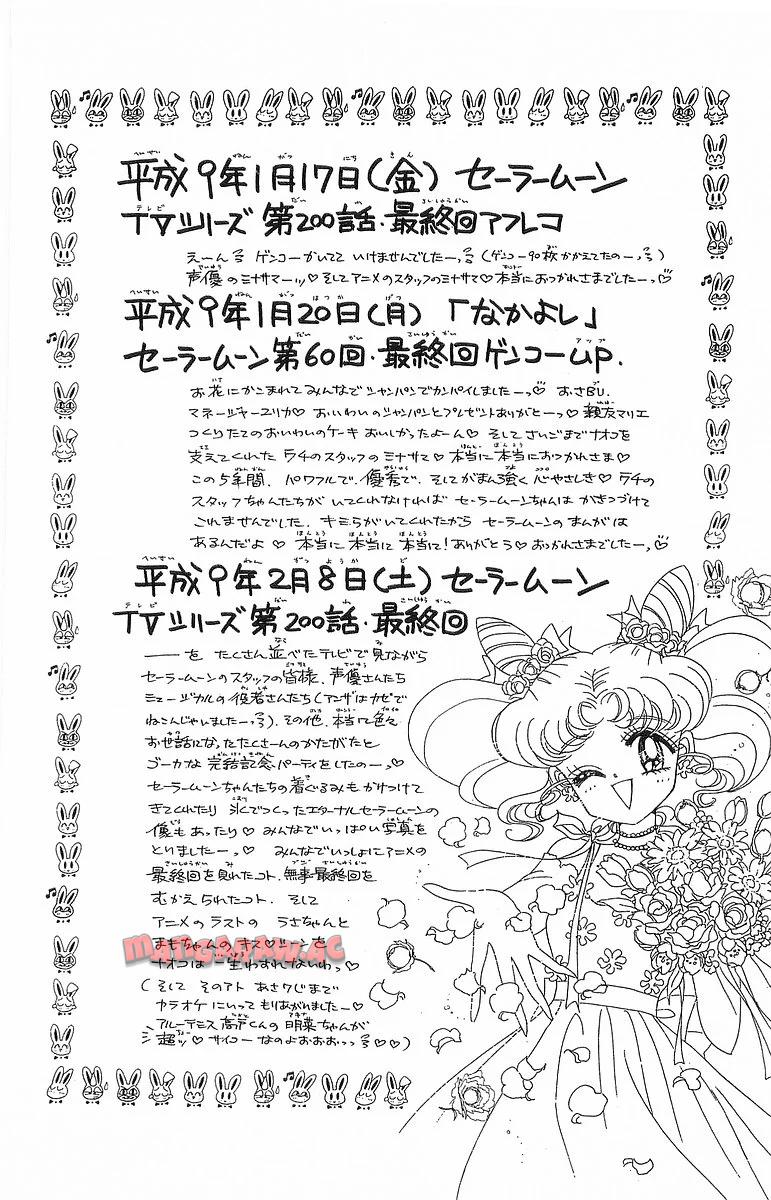 平成9年1月17日(金) セーラームーン
TVシリーズ 第200話・最終回アフレコ
えーん ゲンコーかいてて いけませんでしたーっ (ゲンコー90枚かかえてたのーっ)
声優のミナサマーッ♡ そしてアニメのスタッフのミナサマ♡ 本当におつかれさまでしたーっ♡
平成9年1月20日(月) 「なかよし」
セーラームーン第60回・最終回ゲンコーup.
お花にかこまれてみんなでシャンパンでカンパイしましたーっ♡ おさBU.
マネージャーユリカ♡ おいわいのシャンパンとプレゼントありがとーっ♡ 親友マリエ
つくりたてのおいわいのケーキ おいしかったよーん♡ そしてさいごまでナオコを
支えてくれた ウチのスタッフのミナサマ♡ 本当に本当におつかれさま♡
この5年間、パワフルで、優秀で、そしてがまん強く 心やさしき♡ ウチの
スタッフちゃんたちが いてくれなければ セーラームーンちゃんは かきつづけて
これませんでした. キミらがいてくれたから セーラームーンのまんがは
あるんだよ♡ 本当に 本当に 本当に! ありがとう♡ おつかれさまでしたーっ♡
平成9年2月8日(土) セーラームーン
TVシリーズ 第200話・最終回
――を たくさん並べたテレビで見ながら
セーラームーンのスタッフの皆様、声優さんたち
ミュージカルの役者さんたち(アンザはカゼで
ねこんじゃいましたーっ)、その他、本当に色々
お世話になったたくさんのかたがたと
ゴーカな 完結記念パーティをしたのーっ♡
セーラームーンちゃんたちの着ぐるみもかけつけて
きてくれたり 氷でつくったエターナルセーラームーンの
像もあったり♡ みんなでいっぱい写真を
とりましたーっ♡ みんなでいっしょにアニメの
最終回を見れたコト、無事最終回を
むかえられたコト、そして
アニメのラストの うさちゃんと
まもちゃんの キス♡シーンを
ナオコは一生わすれないわっ♡
(そして そのアト あさ7じまで
カラオケにいって もりあがれましたー♡
アルーテミス 高戸くんの 明菜ちゃんが
超ッ♡ サイコー なのよおおおっっ♡♡)
mangaraw.ac